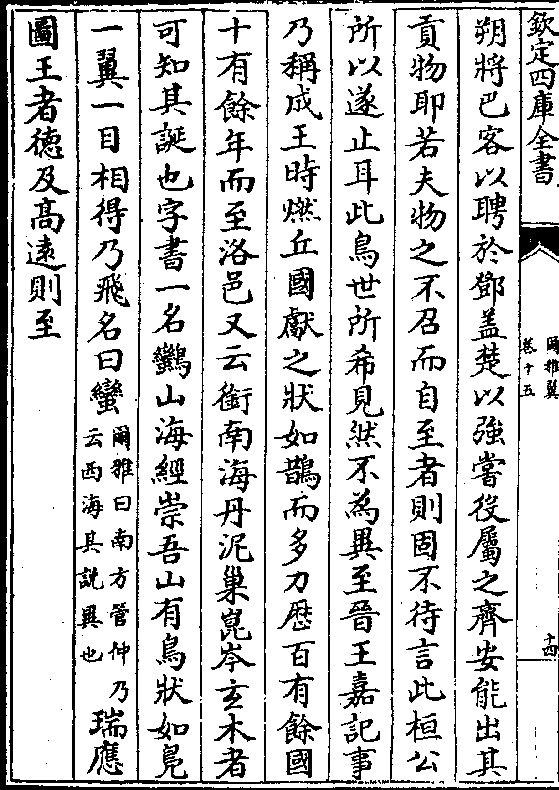 欽定四庫全書
爾雅翼
卷十五
十四
朔將巴客以聘於鄧盖楚以強嘗役屬之齊安能出其
貢物耶若夫物之不召而自至者則固不待言此桓公
所以遂止耳此鳥世所希見然不為異至晉王嘉記事
乃稱成王時燃丘國獻之狀如鵲而多力歴百有餘國
十有餘年而至洛邑又云銜南海丹泥巢崑岑玄木者
可知其誕也字書一名鸓山海經崇吾山有鳥狀如鳬
一翼一目相得乃飛名曰蠻爾雅曰南方管仲乃云西海其説異也瑞應
圖王者徳及髙逺則至